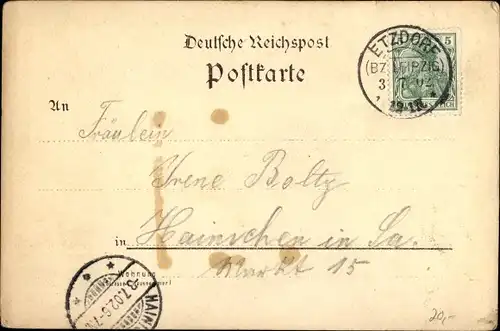 Deutsche Reichspost
Postkarte
ETZDORF
(BZ. LEIPZIG)
5
An
Fräulein
Irene Boltz
in Hainichen in Sa.
Markt 15
Wohnung
3.7.02.6-7
HAINI
20,-